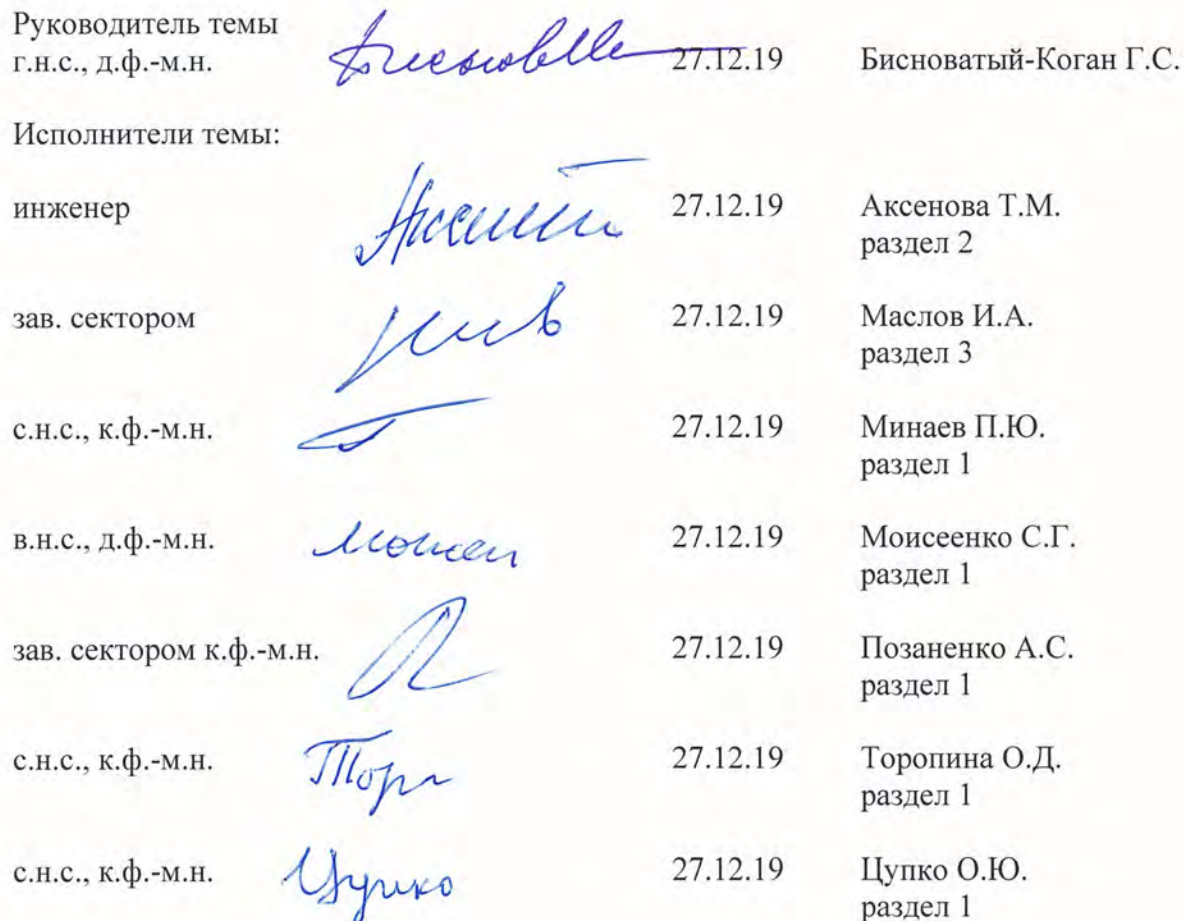 Руководитель темы
г.н.с., д.ф.-м.н. 27.12.19 Бисноватый-Коган Г.С.
Исполнители темы:
инженер 27.12.19 Аксенова Т.М.
раздел 2
зав. сектором 27.12.19 Маслов И.А.
раздел 3
с.н.с., к.ф.-м.н. 27.12.19 Минаев П.Ю.
раздел 1
в.н.с., д.ф.-м.н. 27.12.19 Моисеенко С.Г.
раздел 1
зав. сектором к.ф.-м.н. 27.12.19 Позаненко А.С.
раздел 1
с.н.с., к.ф.-м.н. 27.12.19 Торопина О.Д.
раздел 1
с.н.с., к.ф.-м.н. Цупко 27.12.19 Цупко О.Ю.
раздел 1